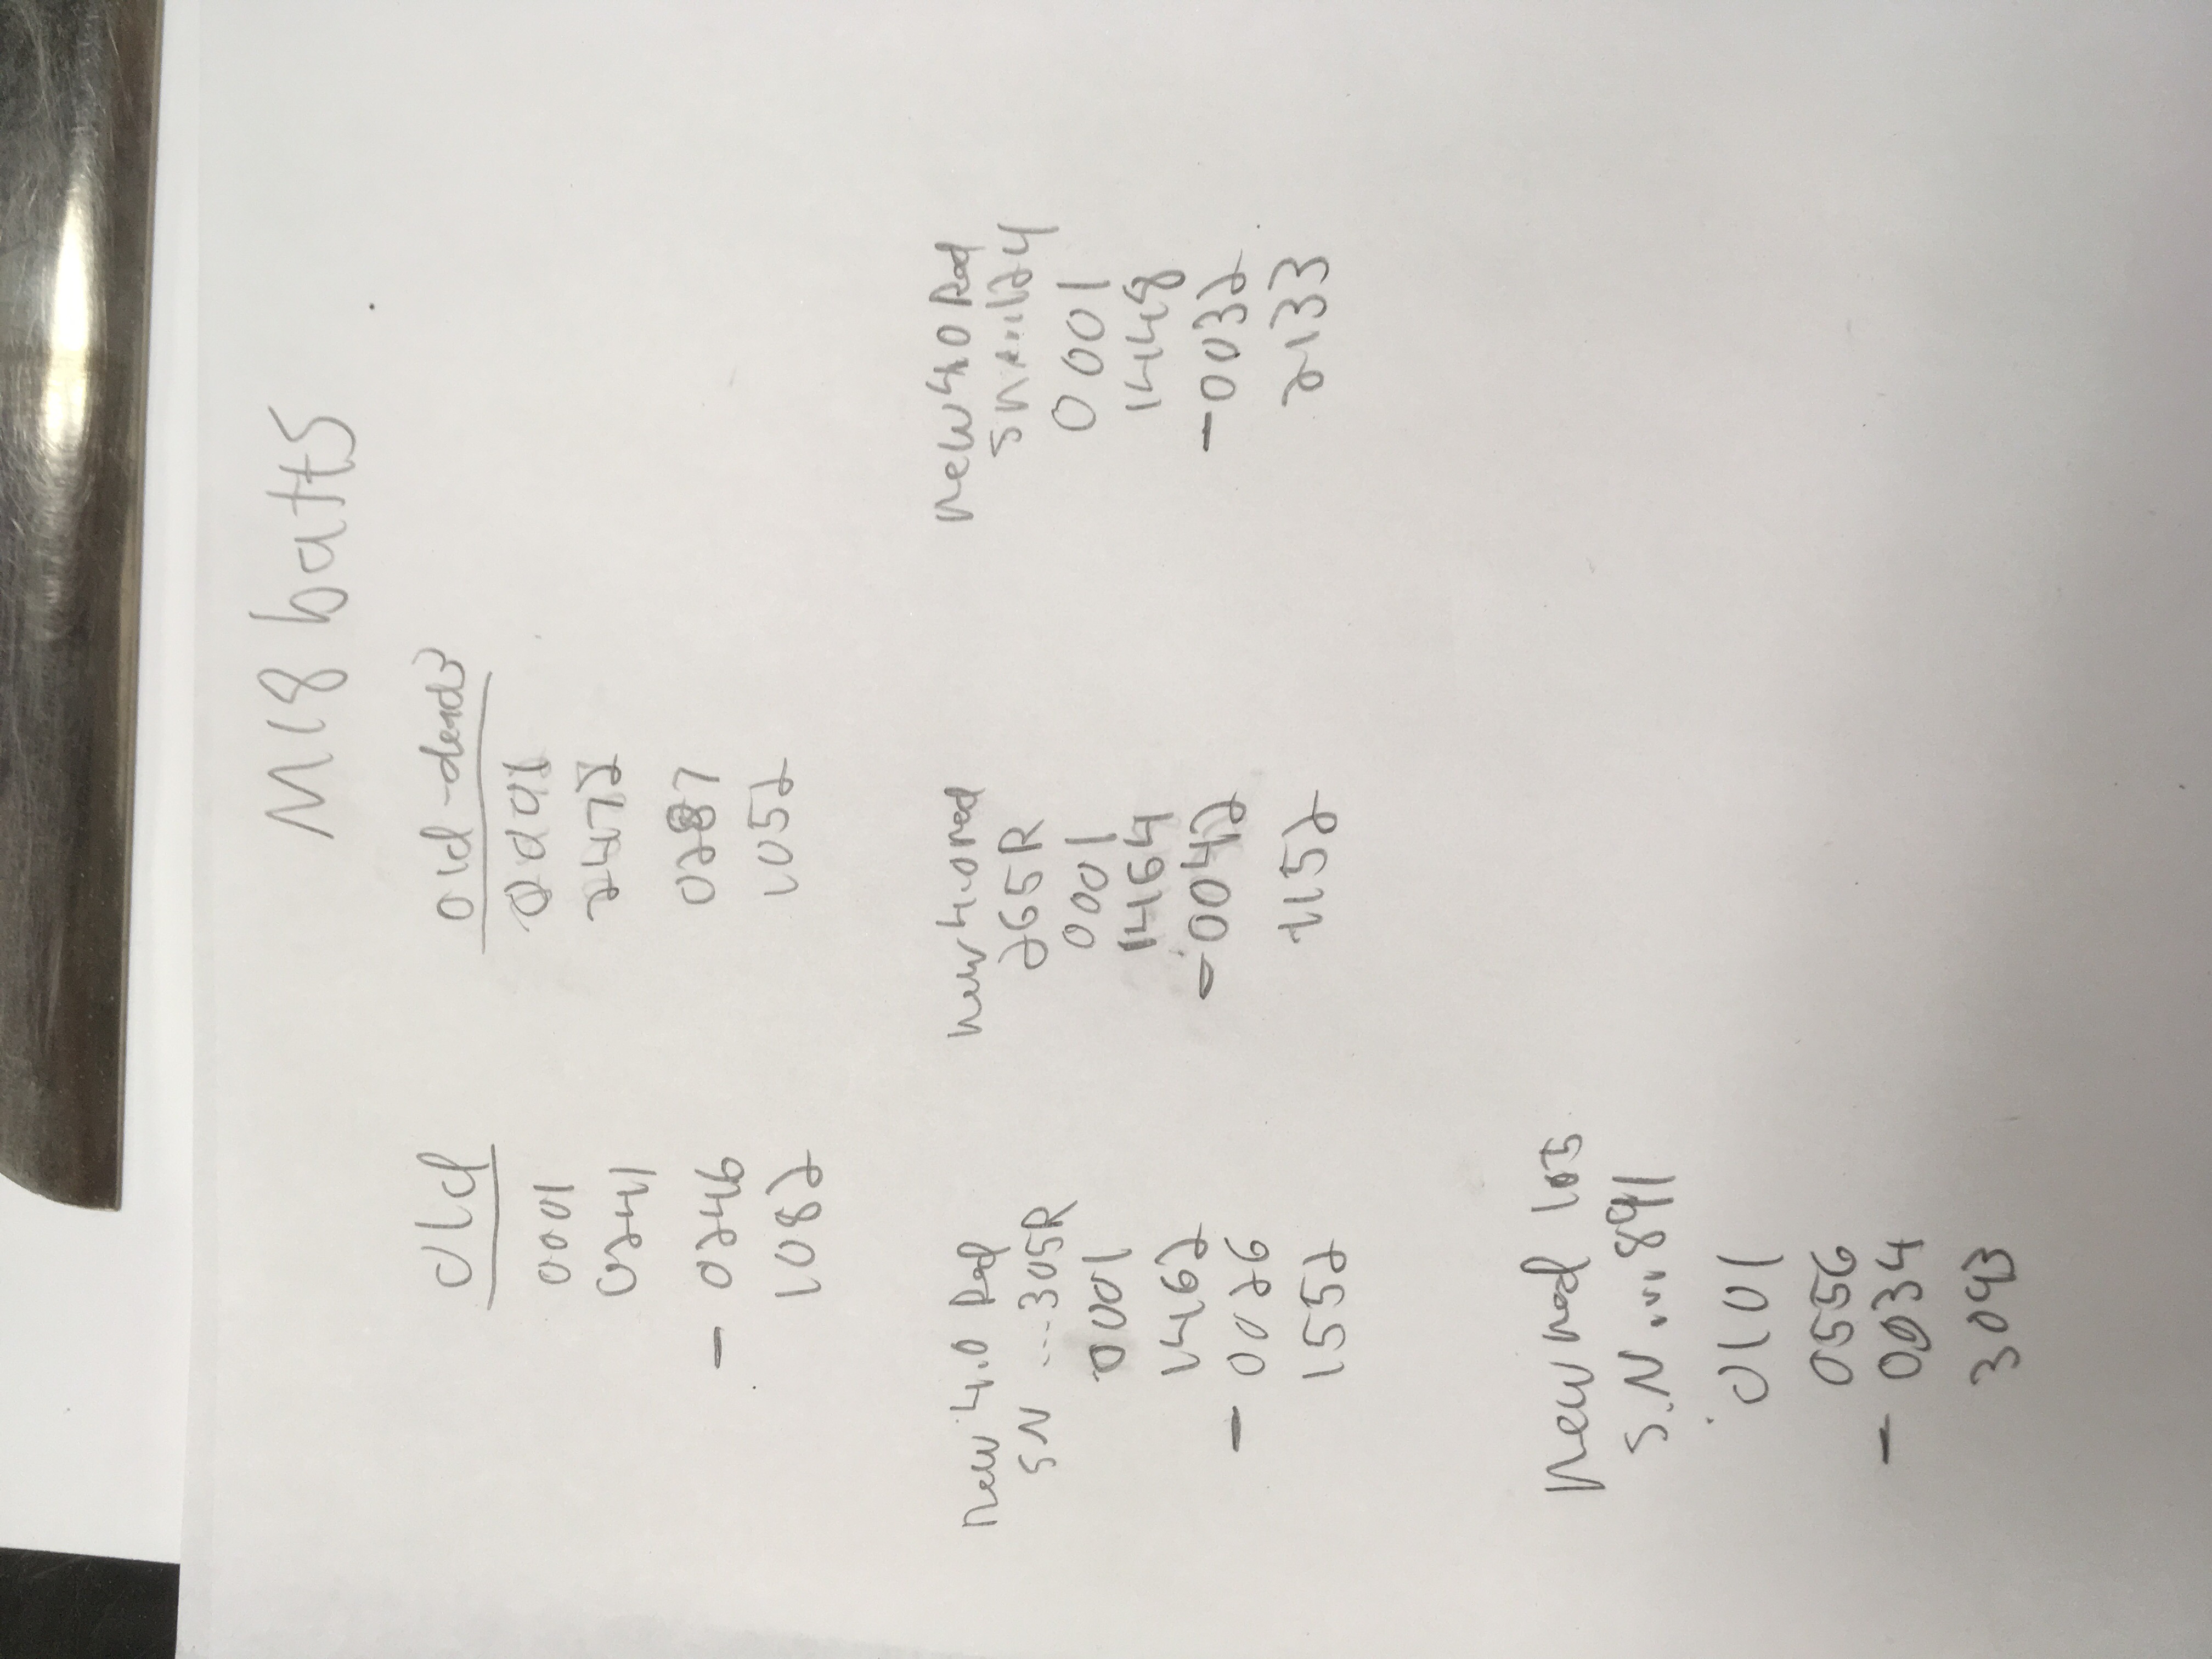 M18 batts
old
0001
0241
- 0246
1082
old-dead
2472
0287
1052
new 4.0 Red
SN ...305R
0001
1462
- 0026
1552
new 4.0 red
265R
0001
1464
-0042
1152
new 4.0 Red
0001
1448
-0032
2133
New red
S.N....891
0101
0556
- 0034
3043